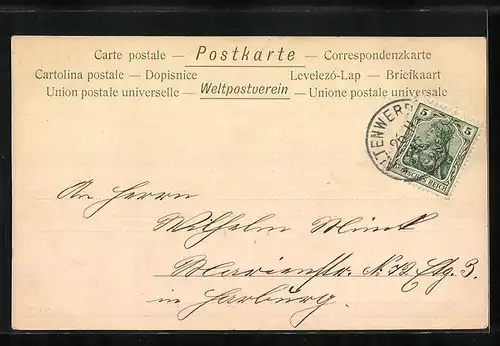 Carte postale — Postkarte — Correspondenzkarte
Cartolina postale — Dopisnice Levelezó-Lap — Briefkaart
Union postale universelle — Weltpostverein — Unione postale universale
5 5
DEUTSCHES REICH
An Herrn
Wilhelm Münk
Marienstr. No
in Harburg.